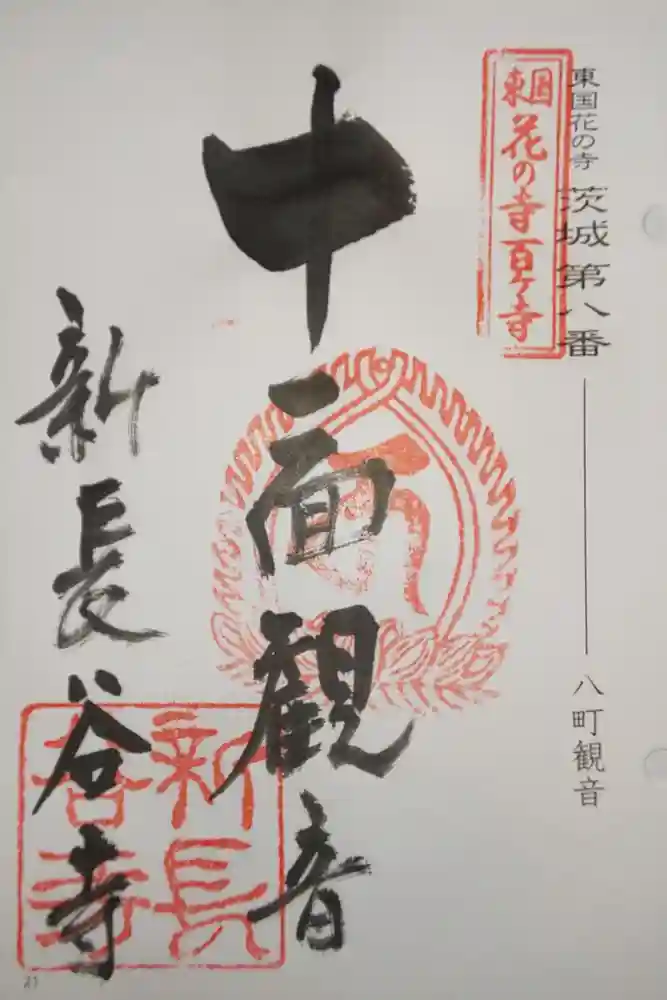 東国花の寺 茨城 第八番
八町観音
東国
花の寺百ケ寺
十一面観音
新長谷寺
新長
谷寺